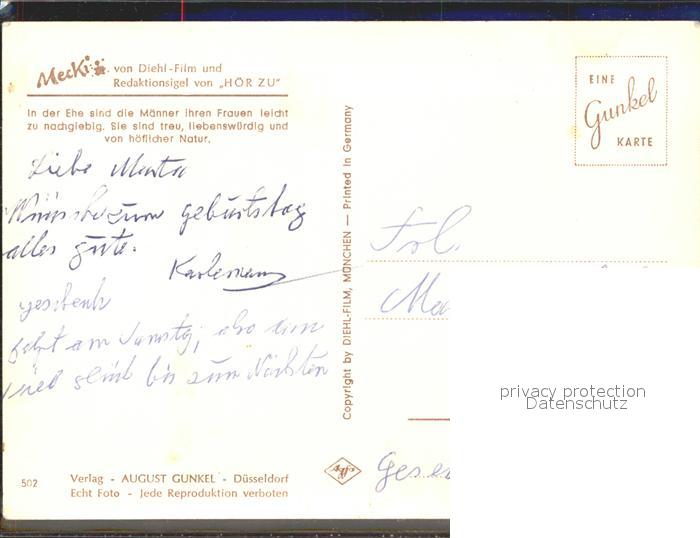 Mecki von Diehl-Film und
Redaktionsigel von „HÖR ZU“
In der Ehe sind die Männer ihren Frauen leicht
zu nachgiebig. Sie sind treu, liebenswürdig und
von höflicher Natur.
Liebe
zum geburtstag
alles gute.
geschenk
am also
bis zum Nächsten
502
Verlag - AUGUST GUNKEL - Düsseldorf
Echt Foto - Jede Reproduktion verboten
Copyright by DIEHL-FILM, MÜNCHEN — Printed in Germany
Agfa
EINE
Gunkel
KARTE
Frl.
privacy protection
Datenschutz